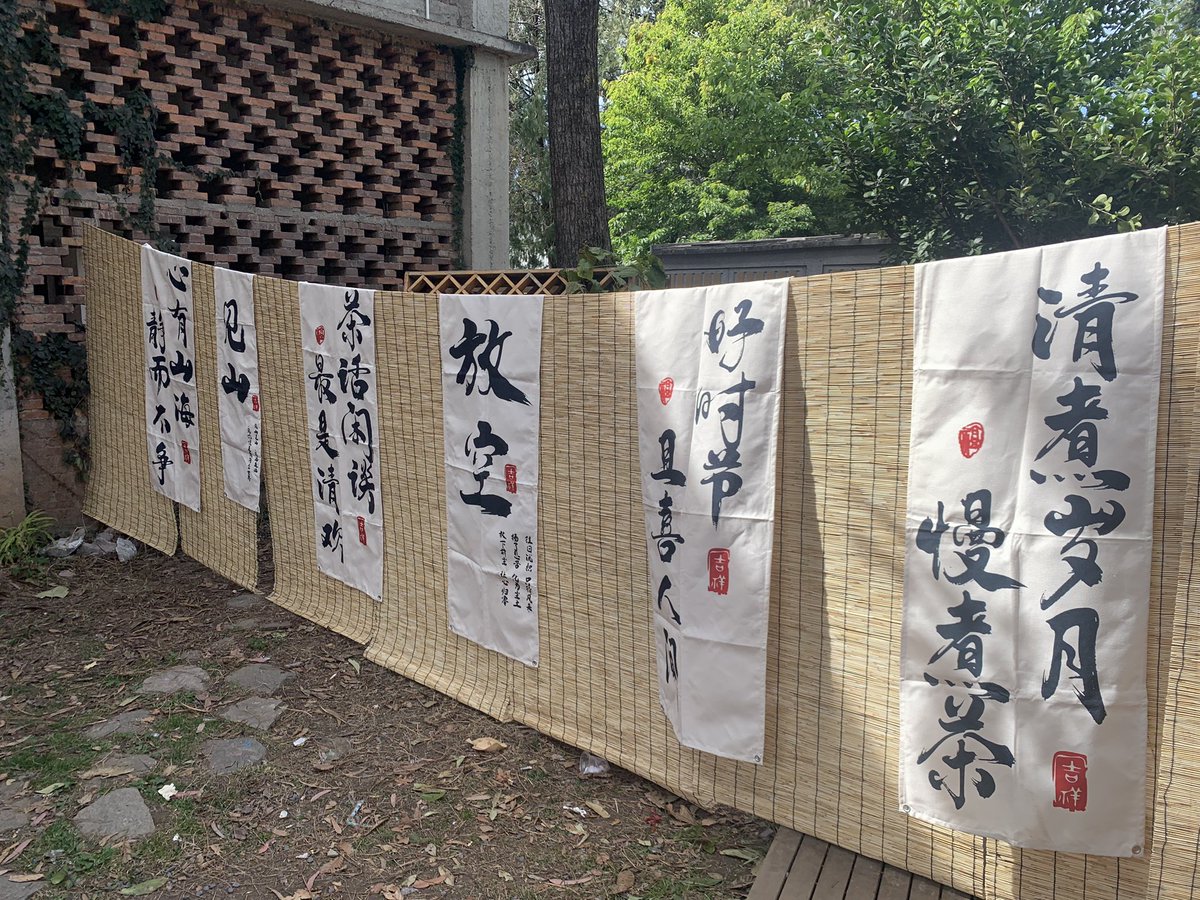 心有山海
静而不争
见山
茶话闲谈
最是清欢
吉祥
放空
吉祥
好时节
且喜人间
吉祥
清煮岁月
慢煮茶
吉祥